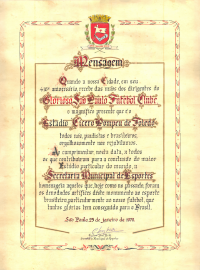 Mensagem
Quando a nossa Cidade, em seu
aniversário recebe das mãos dos dirigentes do
Glorioso São Paulo Futebol Clube
o magnífico presente que é o
Estádio Cícero Pompeu de Toledo
todos nós, paulistas e brasileiros,
orgulhosamente nos rejubilamos.
Ao comemorar nesta data, a todos
os que contribuiram para a construção do maior
Estádio particular do mundo, a
Secretaria Municipal de Esportes
homenageia aqueles que, hoje como no passado foram
os denodados artífices deste monumento ao esporte
brasileiro, particularmente ao nosso futebol, que
tantas glórias tem conseguido para o Brasil.
São Paulo 25 janeiro de 1970.